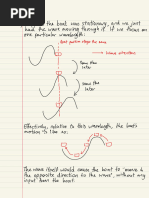 the boat was stationary, and we just
had the wave moving through it. If we focus on
one particular wavelength:
boat particle stays the same
wave direction
Some time
later
Some time
later
Effectively, relative to this wavelength, the boat's
motion is like so:
The wave itself would cause the boat to "move" in
the opposite direction to the wave, without any
input from the boat.